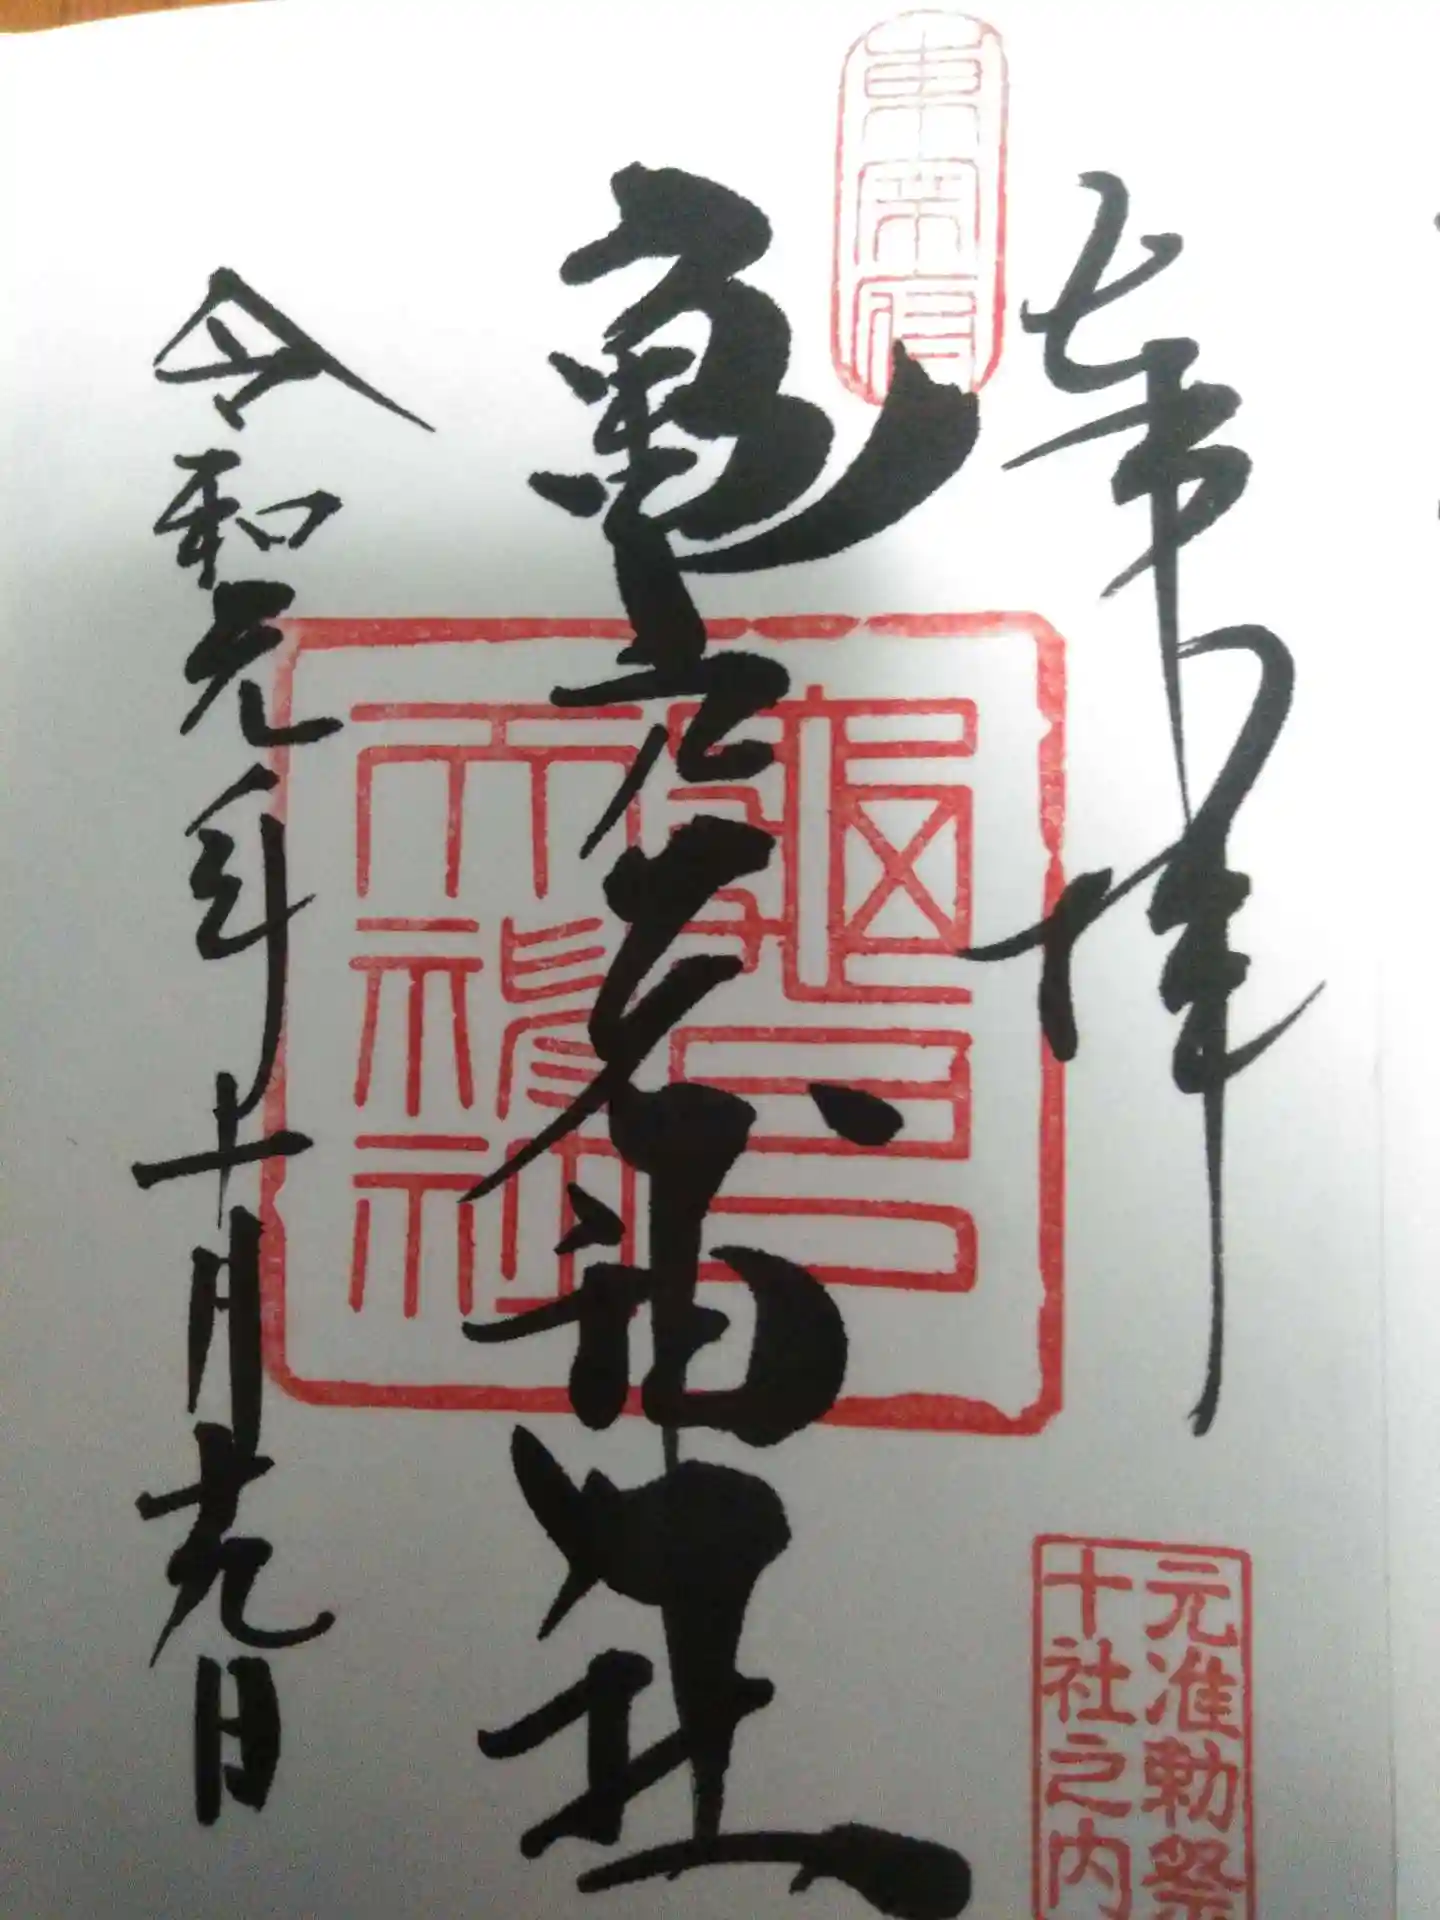 奉拝
東宰府
元准勅祭
十社之内
龜戸天神社
龜戸
天神社
令和元年十月十九日